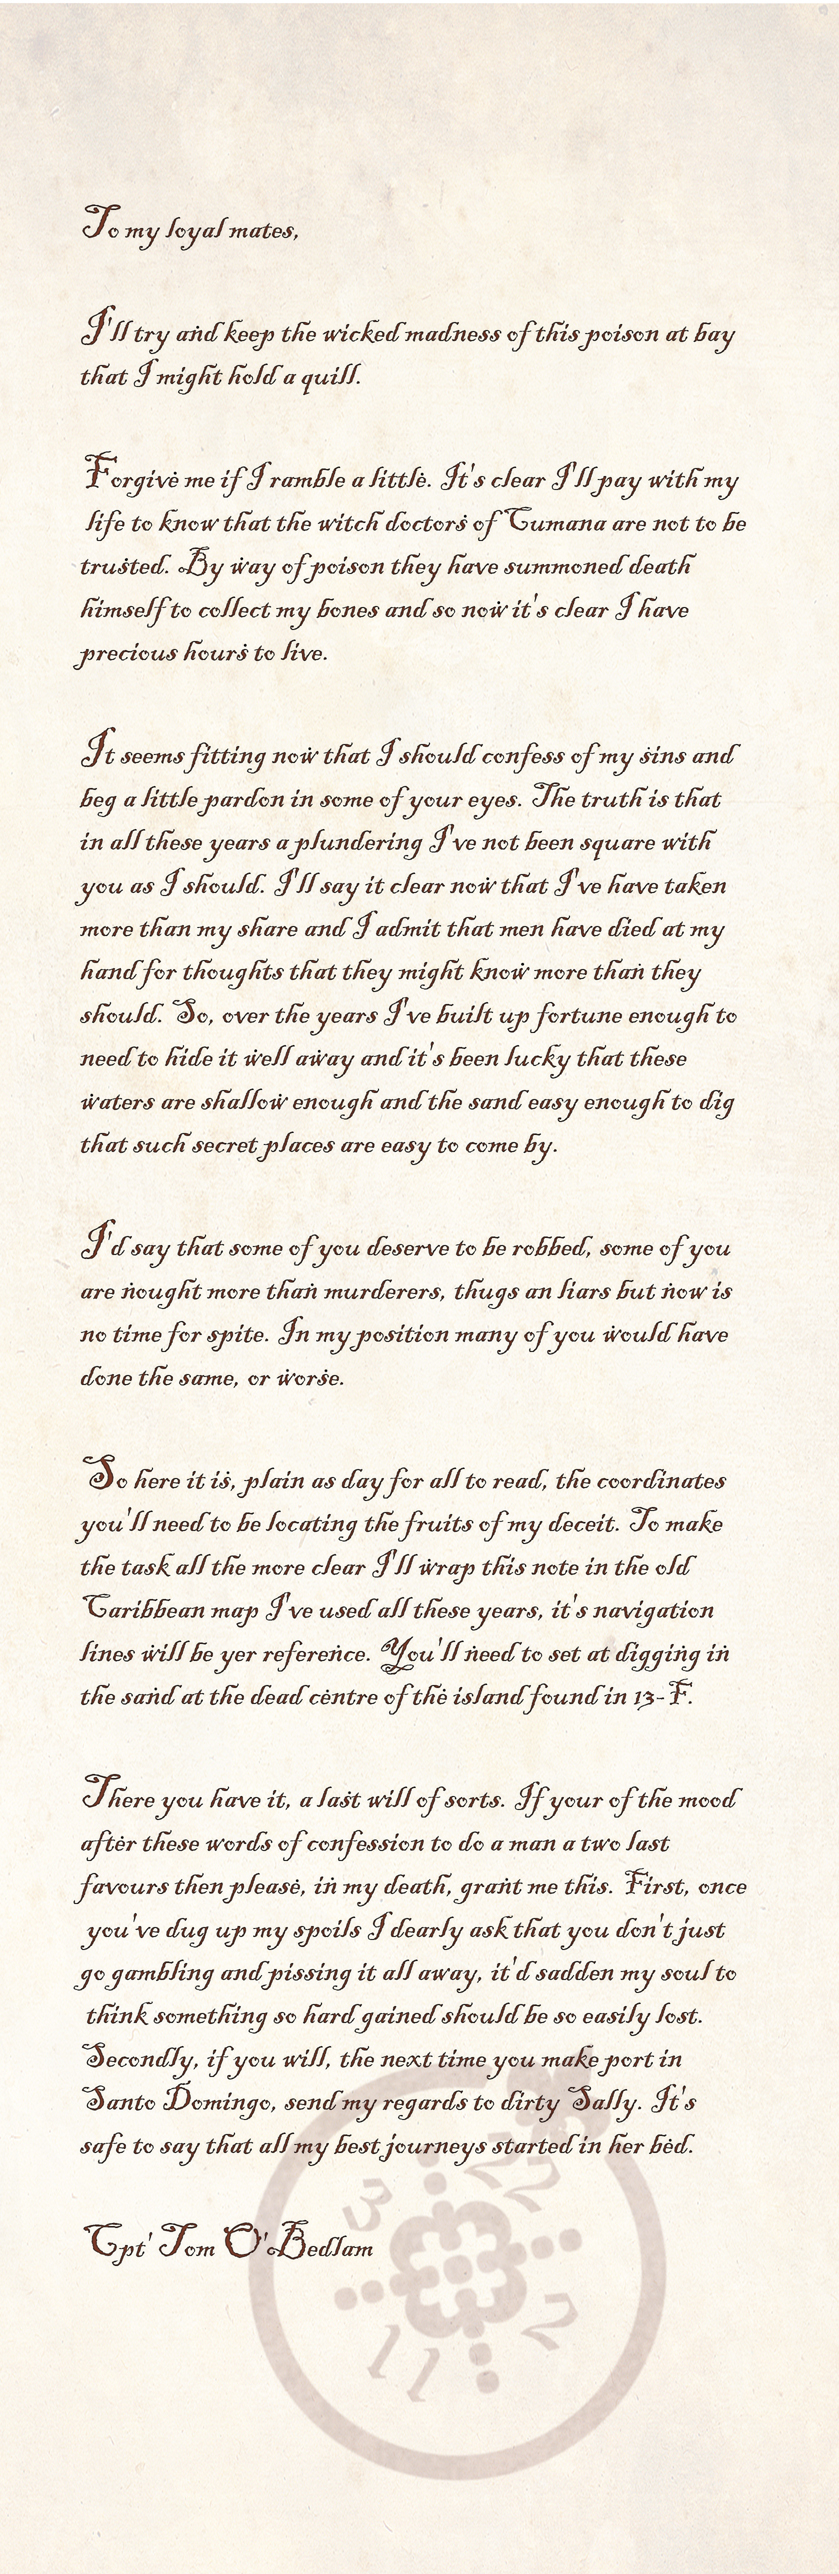 To my loyal mates,
I'll try and keep the wicked madness of this poison at bay
that I might hold a quill.
Forgive me if I ramble a little. It's clear I'll pay with my
life to know that the witch doctors of Cumana are not to be
trusted. By way of poison they have summoned death
himself to collect my bones and so now it's clear I have
precious hours to live.
It seems fitting now that I should confess of my sins and
beg a little pardon in some of your eyes. The truth is that
in all these years a plundering I've not been square with
you as I should. I'll say it clear now that I've have taken
more than my share and I admit that men have died at my
hand for thoughts that they might know more than they
should. So, over the years I've built up fortune enough to
need to hide it well away and it's been lucky that these
waters are shallow enough and the sand easy enough to dig
that such secret places are easy to come by.
I'd say that some of you deserve to be robbed, some of you
are nought more than murderers, thugs an liars but now is
no time for spite. In my position many of you would have
done the same, or worse.
So here it is, plain as day for all to read, the coordinates
you'll need to be locating the fruits of my deceit. To make
the task all the more clear I'll wrap this note in the old
Caribbean map I've used all these years, it's navigation
lines will be yer reference. You'll need to set at digging in
the sand at the dead centre of the island found in 13-F.
There you have it, a last will of sorts. If your of the mood
after these words of confession to do a man a two last
favours then please, in my death, grant me this. First, once
you've dug up my spoils I dearly ask that you don't just
go gambling and pissing it all away, it'd sadden my soul to
think something so hard gained should be so easily lost.
Secondly, if you will, the next time you make port in
Santo Domingo, send my regards to dirty Sally. It's
safe to say that all my best journeys started in her bed.
Cpt' Tom O'Bedlam
3 22
11 2